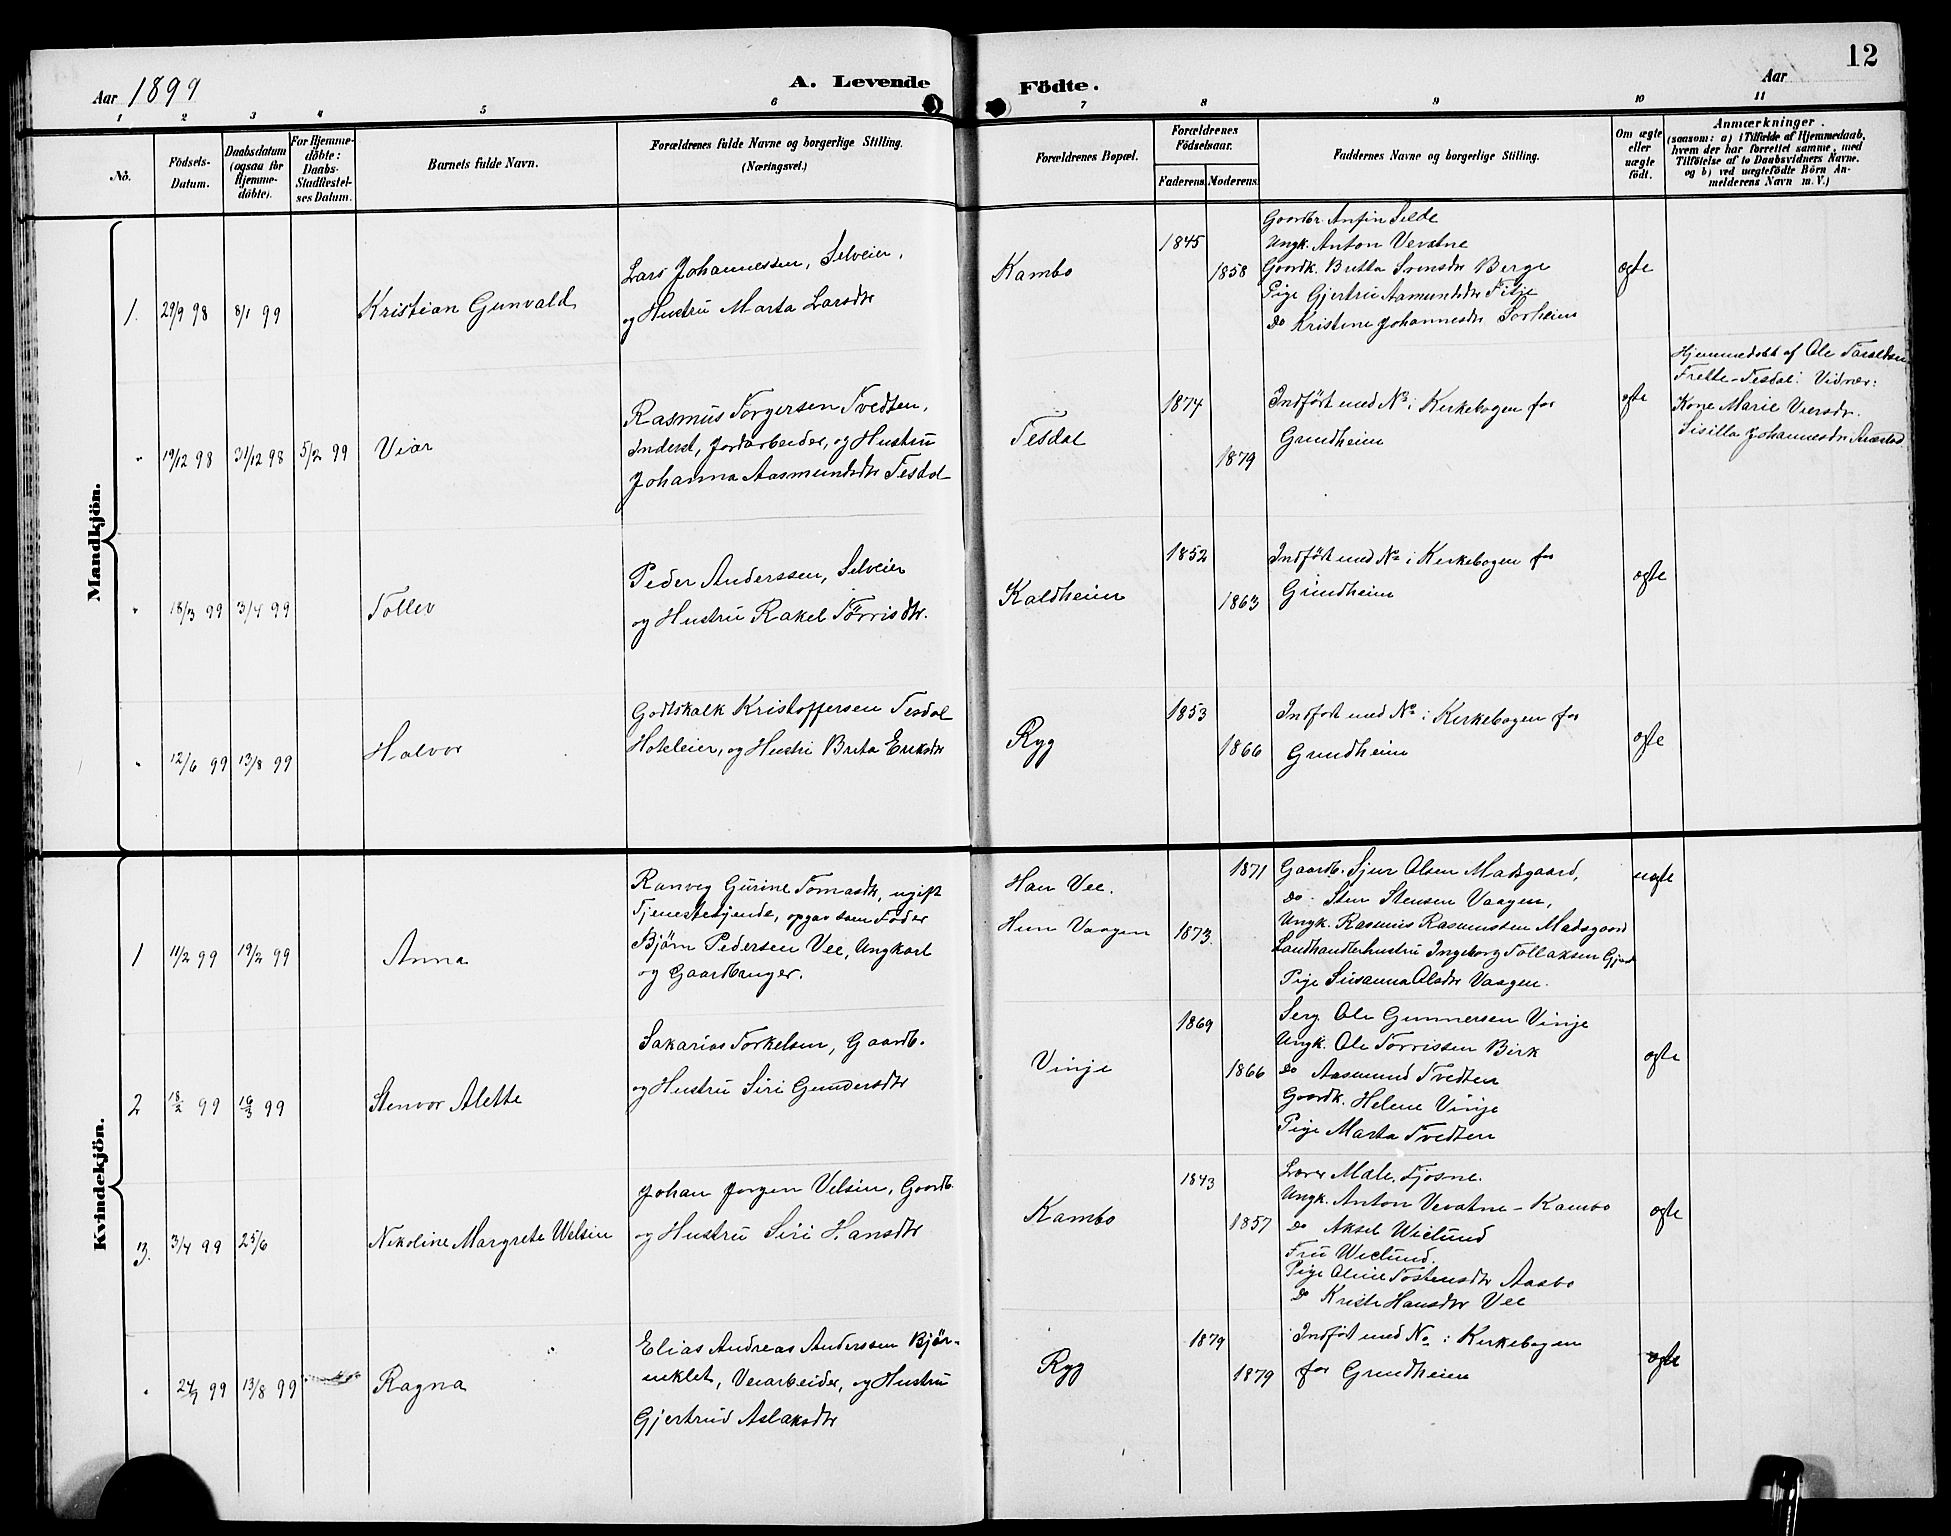 12
Aar 1899
A. Levende Födte.
Aar
1 2 3 4 5 6 7 8 9 10 11
No.
Födsels-Datum.
Daabsdatum (ogsaa for Hjemme-döbte).
For Hjemme-döbte: Daabs-Stadfæstel-ses Datum.
Barnets fulde Navn.
Forældrenes fulde Navne og borgerlige Stilling.
(Næringsvei.)
Forældrenes Bopæl.
Forældrenes Födselsaar.
Faderens. Moderens.
Faddernes Navne og borgerlige Stilling.
Om ægte eller uægte födt.
Anmærkninger.
(saasom: a) i Tilfælde af Hjemmedaab,
hvem der har forrettet samme, med
Tilföielse af to Daabsvidners Navne.
og b) ved uægtefödte Börn An-
melderens Navn m. V.)
Mandkjön.
1. 29/9 98 8/1 99
Kristian Gunvald
Lars Johannessen, Selveier,
og Hustru Marta Larsdtr
Kambo
1845
1858
Gaardbr. Anfin Selde
Ungk. Anton Vevatne
Gaardk. Britta Svensdtr Berge
Pige Gjertru Aamundsdtr Fitje
Do Kristine Johannesdtr Sørheim
ægte
" 19/12 98 31/12 98 5/2 99
Viar
Rasmus Torgersen Tvedten,
Inderst, Jordarbeider, og Hustru
Johanna Aasmundsdtr Tesdal
Tesdal
1874
1879
Indført med No i Kirkebogen for
Grindheim
ægte
Hjemmedøbt af Ole Taraldsen
Frette-Tesdal. Vidner:
Kone Marie Viersdr.
Sisilla Johannesdr
" 18/3 99 3/4 99
Tollev
Peder Anderssen, Selveier
og Hustru Rakel Tørrisdtr.
Kaldheim
1852
1863
Indført med No i Kirkebogen for
Grindheim
ægte
" 12/6 99 13/8 99
Halvor
Godtskalk Kristoffersen Tesdal
Hoteleier, og Hustru Brita Eriksdtr
Ryg
1853
1866
Indført med No i Kirkebogen for
Grindheim
ægte
Kvindekjön.
1 11/2 99 19/2 99
Anna
Ranveg Gurine Tomasdtr, ugift
Tjenestetjende, opgav som Fader
Bjørn Pedersen Vee, Ungkarl
og Gaardbruger.
Han Vee.
Hun Vaagen
1871
1873.
Gaardb. Sjur Olsen Madsgaard,
Do. Sten Stensen Vaagen,
Ungk. Rasmus Rasmussen Madsgaard
Landhandlerhustru Ingeborg Tollaksen
Pige Susanna Olsdtr Vaagen.
uægte
2 18/2 99 19/3 99
Stenvor Alette
Sakarias Torkelsen, Gaardb.
og Hustru Siri Gundersdtr
Vinje
1869
1866
Serg. Ole Gunnersen Vinje
Ungk. Ole Torrissen Birk
Do Aasmund Tvedten
Gaardk. Helene Vinje
Pige Marta Tvedten
ægte
3. 3/4 99 25/6
Nikoline Margrete Welsin
Johan Jørgen Velsin, Gaardb.
og Hustru Siri Hansdtr
Kambo
1843
1857
Lærer Male, Fjøsne.
Ungk. Anton Vevatne - Kambo
Do Aksel Wiclund
Fru Wiclund.
Pige Oline Tostensdtr Aasbo
Do Kristi Hansdtr Vee
ægte
" 99 13/8 99
Ragna
Elias Andreas Anderssen Bjør-
neklet, Veiarbeider, og Hustru
Gjertrud Aslaksdtr
Ryg
1879
1879
Indført med No i Kirkebogen
for Grindheim
ægte